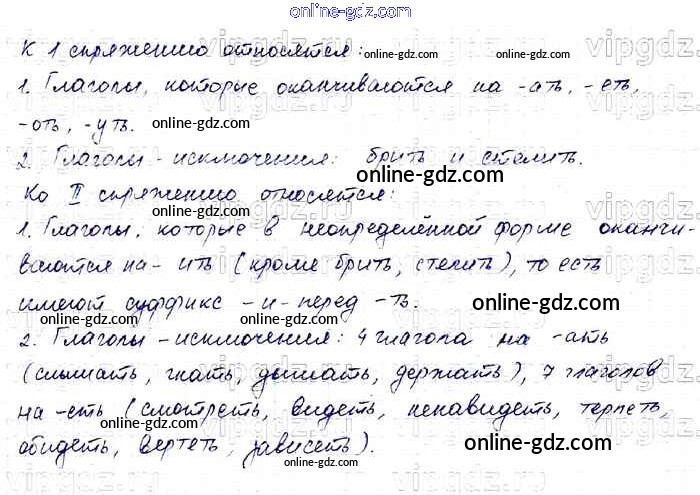 online-gdz.com
К 1 спряжению относятся: online-gdz.com online-gdz.com
1. Глаголы, которые оканчиваются на -ать, -еть,
-оть, -уть. online-gdz.com online-gdz.com
2. Глаголы-исключения: брить и стелить.
Ко II спряжению относятся: online-gdz.com
online-gdz.com
1. Глаголы, которые в неопределённой форме оканчи-
ваются на- ить (кроме брить, стелить), то есть
имеют суффикс -и- перед -ть. online-gdz.com
online-gdz.com
2. Глаголы-исключения: 4 глагола на -ать
(слышать, гнать, дышать, держать), 7 глаголов
на -еть (смотреть, видеть, ненавидеть, терпеть,
обидеть, вертеть, зависеть). online-gdz.com
online-gdz.com